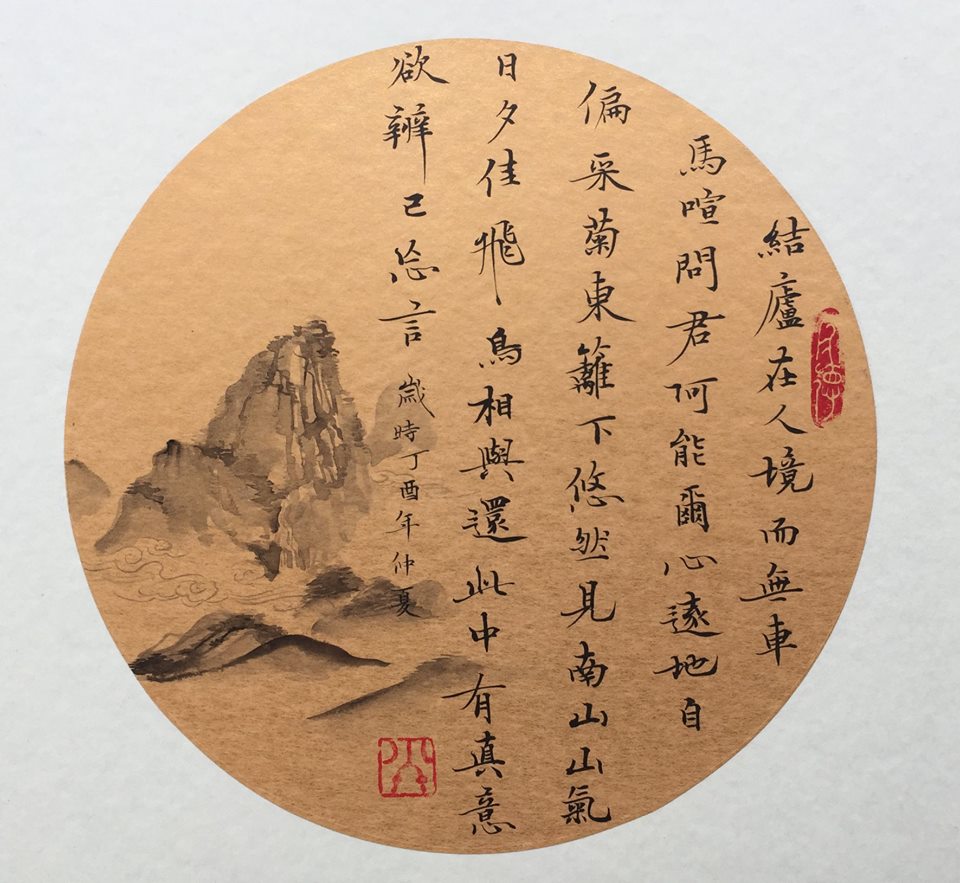 結廬在人境而無車
馬喧問君阿能爾心遠地自
偏采菊東籬下悠然見南山山氣
日夕佳飛鳥相與還此中有真意
欲辨已忘言 歲時丁酉年仲夏